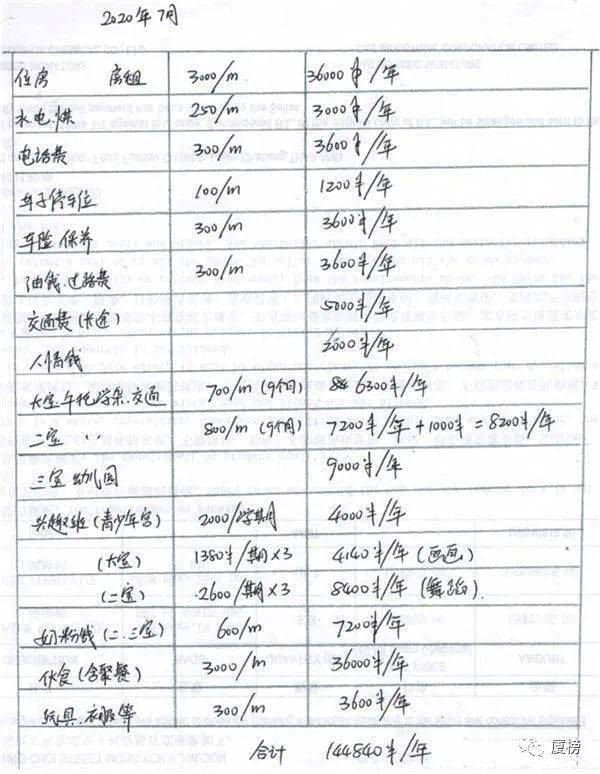 2020年7月
住房 房租 3000/m 36000¥/年
水电.煤 250/m 3000¥/年
电话费 300/m 3600¥/年
车子停车位 100/m 1200¥/年
车险.保养 300/m 3600¥/年
油钱.过路费 300/m 3600¥/年
交通费(长途) 5000¥/年
人情钱 2000¥/年
大宝午托.作业.交通 700/m (9个月) 6300¥/年
二宝 (..) 800/m (9个月) 7200¥/年+1000¥=8200¥/年
三宝 幼儿园 9000¥/年
兴趣班(青少年宫) 2000/学期 4000¥/年
(大宝) 1380¥/期×3 4140¥/年(画画)
(二宝) 2600/期×3 8400¥/年(舞蹈)
奶粉钱(二.三宝) 600/m 7200¥/年
伙食(含聚餐) 3000/m 36000¥/年
玩具.衣服等 300/m 3600¥/年
合计 144840¥/年
厦榜